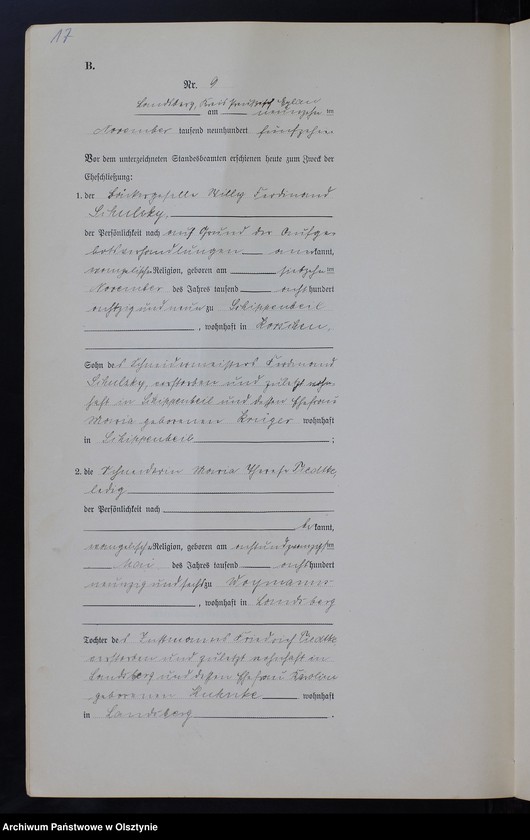 17
B.
Nr. 9
Landsberg, Kreis Preußisch Eylau
am neunzehn ten
November tausend neunhundert fünfzehn
Vor dem unterzeichneten Standesbeamten erschienen heute zum Zweck der
Eheschließung:
1. der Bäckergeselle Willy Ferdinand
der Persönlichkeit nach auf Grund der Aufge-
botsverhandlungen anerkannt,
evangelischer Religion, geboren am siebzehn ten
November des Jahres tausend achthundert
achtzig und neun zu Schippenbeil
, wohnhaft in Korschen,
Sohn des Schneidermeisters Ferdinand
verstorben und zuletzt wohn-
haft in Schippenbeil und dessen Ehefrau
Maria geborenen Krüger wohnhaft
in Schippenbeil ;
2. die Schneiderin Maria Therese Tiedtke
ledig
der Persönlichkeit nach
bekannt,
evangelischer Religion, geboren am achtundzwanzigsten
Mai des Jahres tausend achthundert
neunzig und sechs zu Woymanns
, wohnhaft in Landsberg
Tochter des Instmanns Friedrich Tiedtke
verstorben und zuletzt wohnhaft in
Landsberg und dessen Ehefrau Karoline
geborenen wohnhaft
in Landsberg .
Archiwum Państwowe w Olsztynie